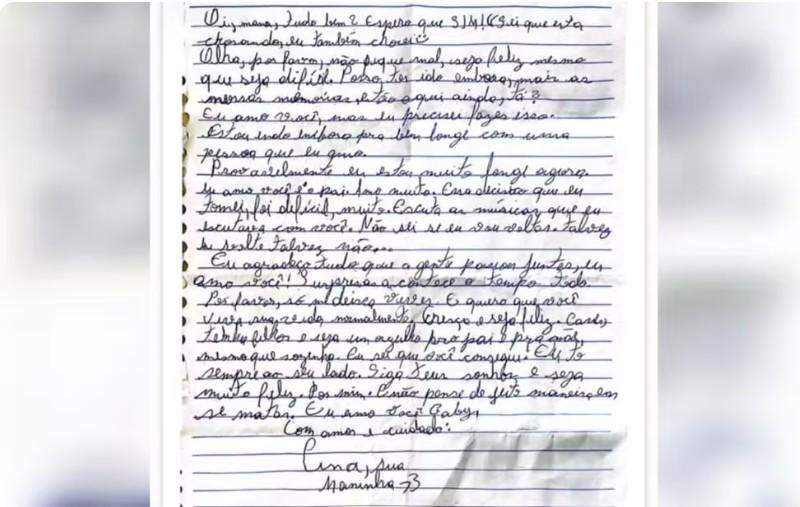 Oi, mana, tudo bem? Espero que SIM! Sei que esta
chorando, eu também chorei
Olha, por favor, não fique mal, seja feliz mesmo
que seja difícil. Posso, ter ido embora, mais as
nossas memórias, estão aqui ainda, tá?
Eu amo você, mas eu precisei fazer isso.
Estou indo embora pra bem longe com uma
pessoa que eu amo.
Provavelmente eu estou muito longe agora.
Eu amo você e o pai. Amo muito. Essa decisão que eu
tomei, foi difícil, muito. Escuta as músicas que eu
escutava com você. Não sei se eu vou voltar. Talvez
eu volte talvez não...
Eu agradeço tudo que a gente passou juntas, eu
amo você! Surpresas acontece o tempo todo.
Por favor, só me deixa viver. E quero que você
viva sua vida normalmente. Cresça e seja feliz. Case,
tenha filhos e seja um orgulho pro pai e pra mãe,
mesmo que sozinha. Eu sei que você consegue. Eu to
sempre ao seu lado. Siga teus sonhos e seja
muito feliz. Por mim. E não pense de jeito maneira em
se matar. Eu amo você Gaby,
Com amor e cuidado:
sua
Maninha <3